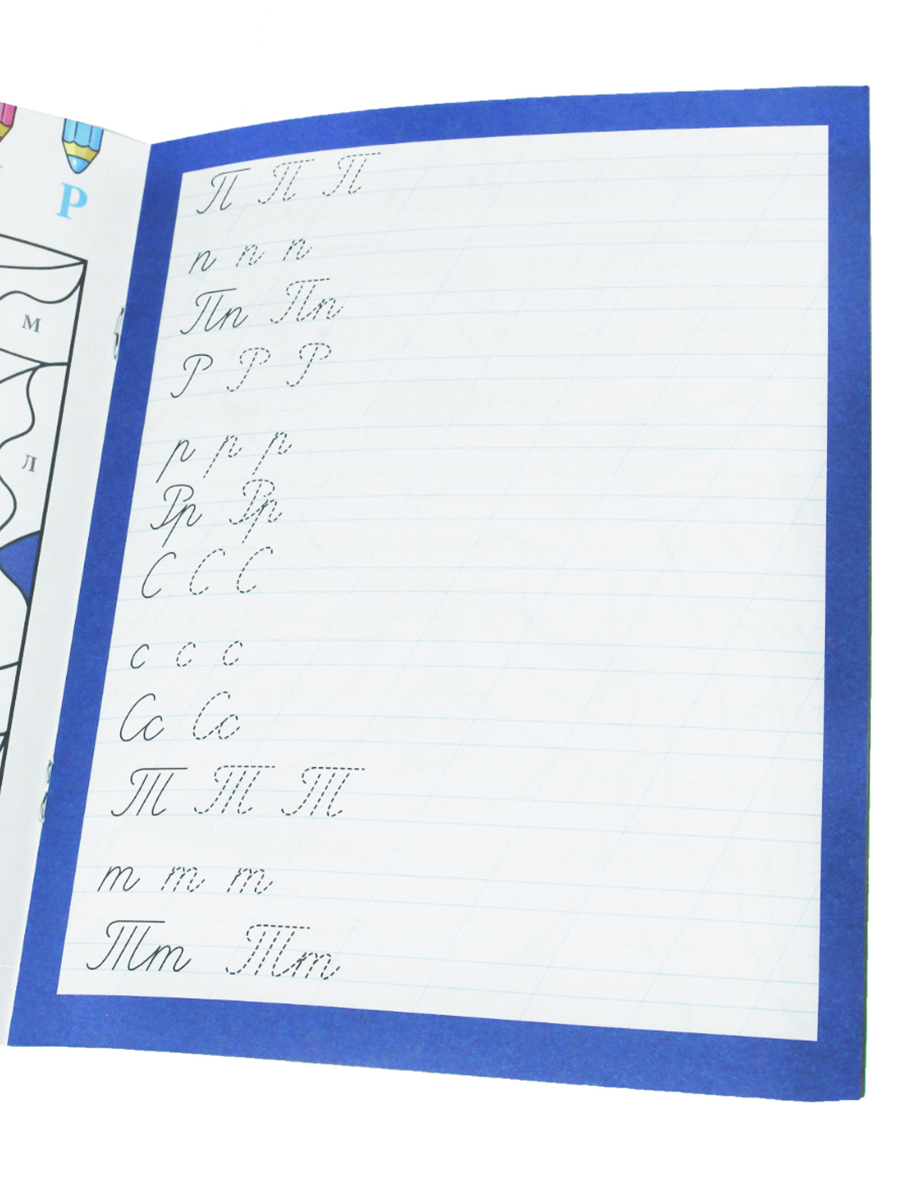 Р
М
Л
П П П
п п п
Пп Пп
Р Р Р
р р р
Рр Рр
С С С
с с с
Сс Сс
Т Т Т
т т т
Тт Тт